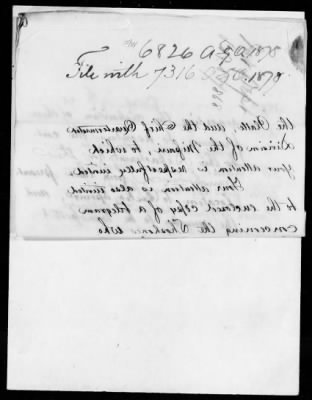 6826 A.G.O. 1878
File with 7316 A.G.O. 1878.
the State, and the Chief Quartermaster
Division of the Missouri, to which
your attention is respectfully invited.
Your attention is also invited
to the enclosed copy of a telegram
concerning the Shoshones who